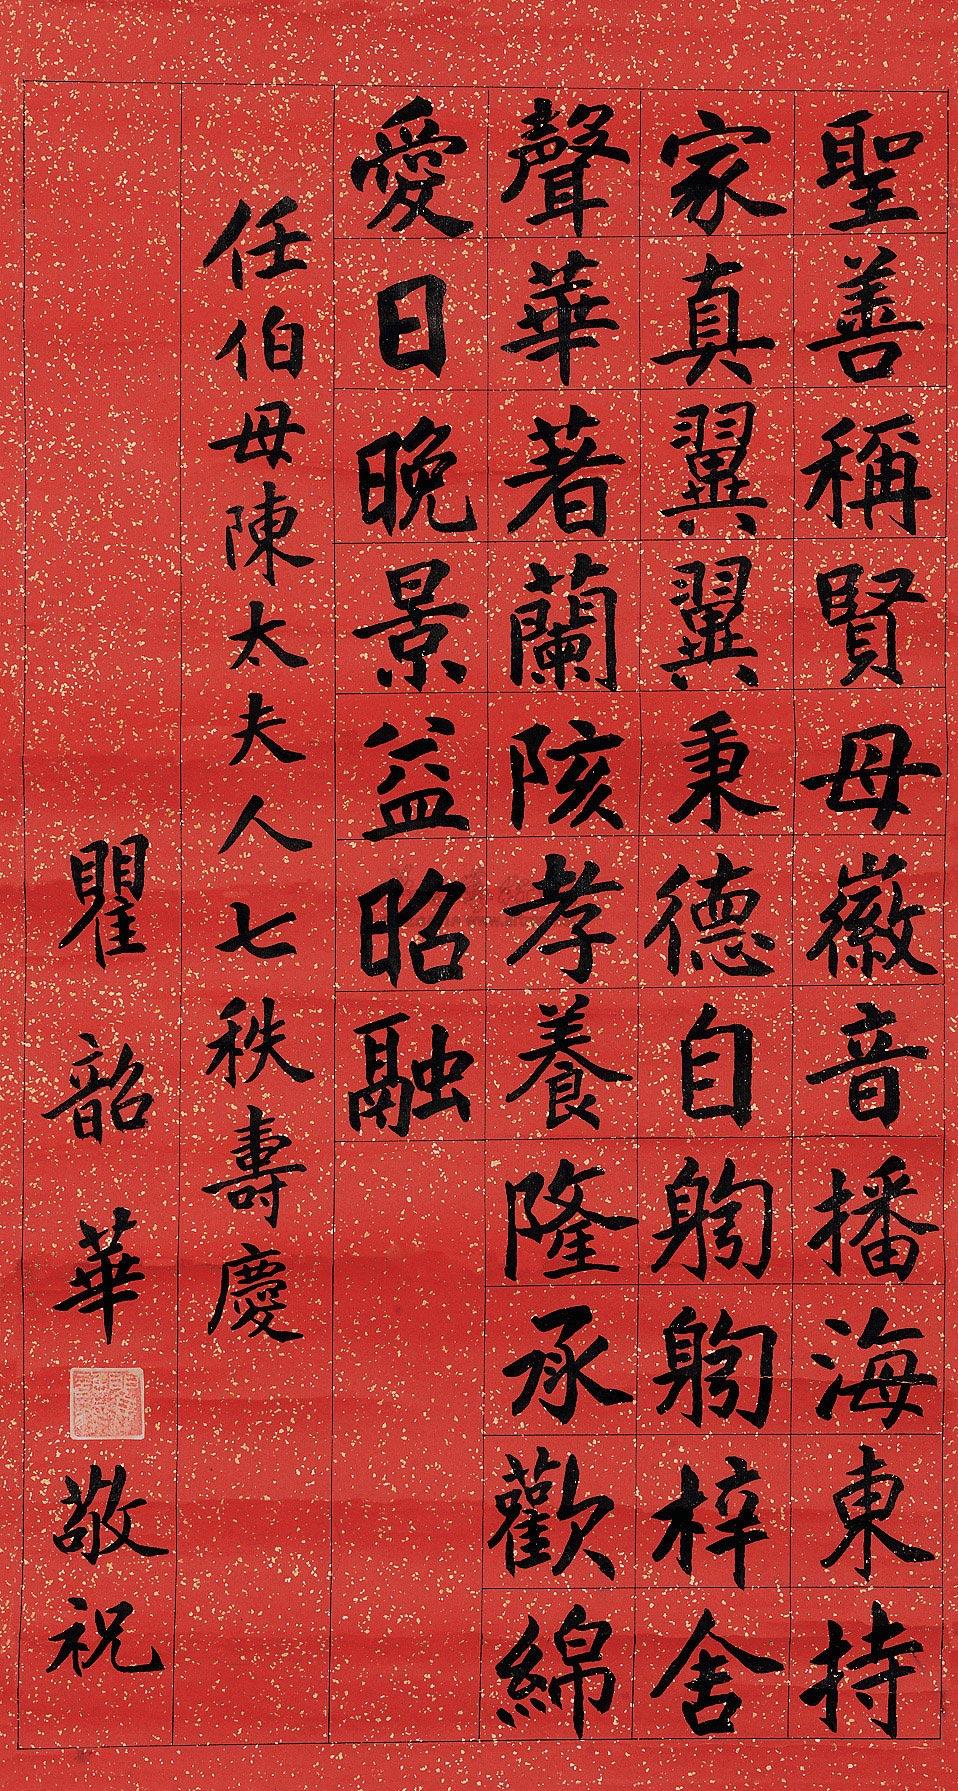 聖善稱賢母徽音播海東持
家真翼翼秉德自躹躹梓舍
聲華著蘭陔孝養隆承歡綿
愛日晚景益昭融
任伯母陳太夫人七秩壽慶
瞿韶華敬祝